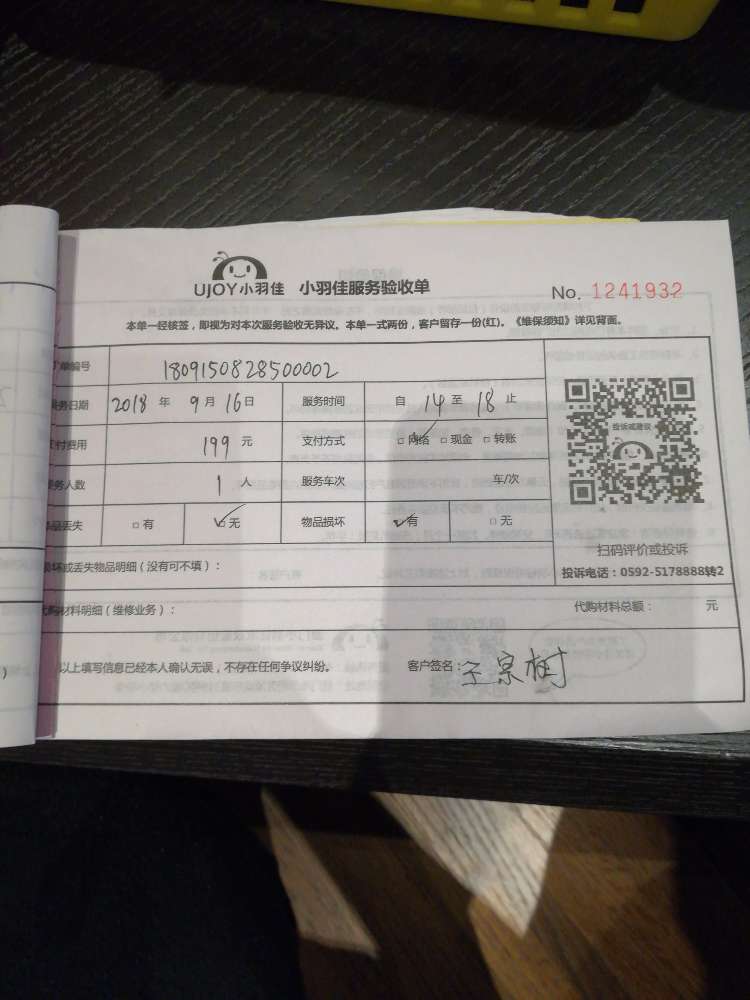 UJOY小羽佳 小羽佳服务验收单 No. 1241932
本单一经核签，即视为对本次服务验收无异议。本单一式两份，客户留存一份(红)。《维保须知》详见背面。
单编号 180915082850002
务日期 2018 年 9 月 16 日 服务时间 自 14 至 18 止
付费用 199 元 支付方式 □ 网络 □ 现金 □ 转账
务人数 1 人 服务车次 车/次
品丢失 □ 有 □ 无 物品损坏 □ 有 □ 无
投诉或建议
扫码评价或投诉
投诉电话：0592-5178888转2
坏或丢失物品明细（没有可不填）：
代购材料明细（维修业务）： 代购材料总额： 元
以上填写信息已经本人确认无误，不存在任何争议纠纷。 客户签名：